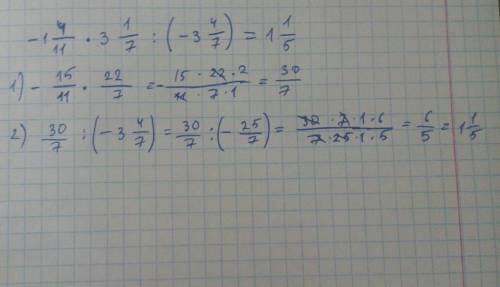 -1 4/11 · 3 1/7 : (-3 4/7) = 1 1/5
1) - 15/11 · 22/7 = - 15 · 22 · 2 / 11 · 7 · 1 = 30/7
2) 30/7 : (-3 4/7) = 30/7 : (- 25/7) = 30 · 7 · 1 · 6 / 7 · 25 · 1 · 5 = 6/5 = 1 1/5